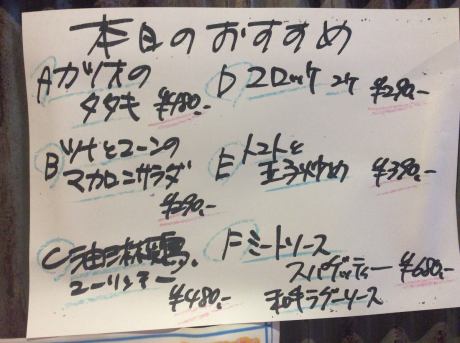 本日のおすすめ
Aカツオの
タタキ ¥480.-
Bツナとコーンの
マカロニサラダ
¥290.-
C油淋鶏.
ユーリンチー
¥480.-
Dコロッケ 2ケ
¥290.-
Eトマトと
玉子炒め ¥390.-
Fミートソース
スパゲッティー ¥680.-
ラグーソース